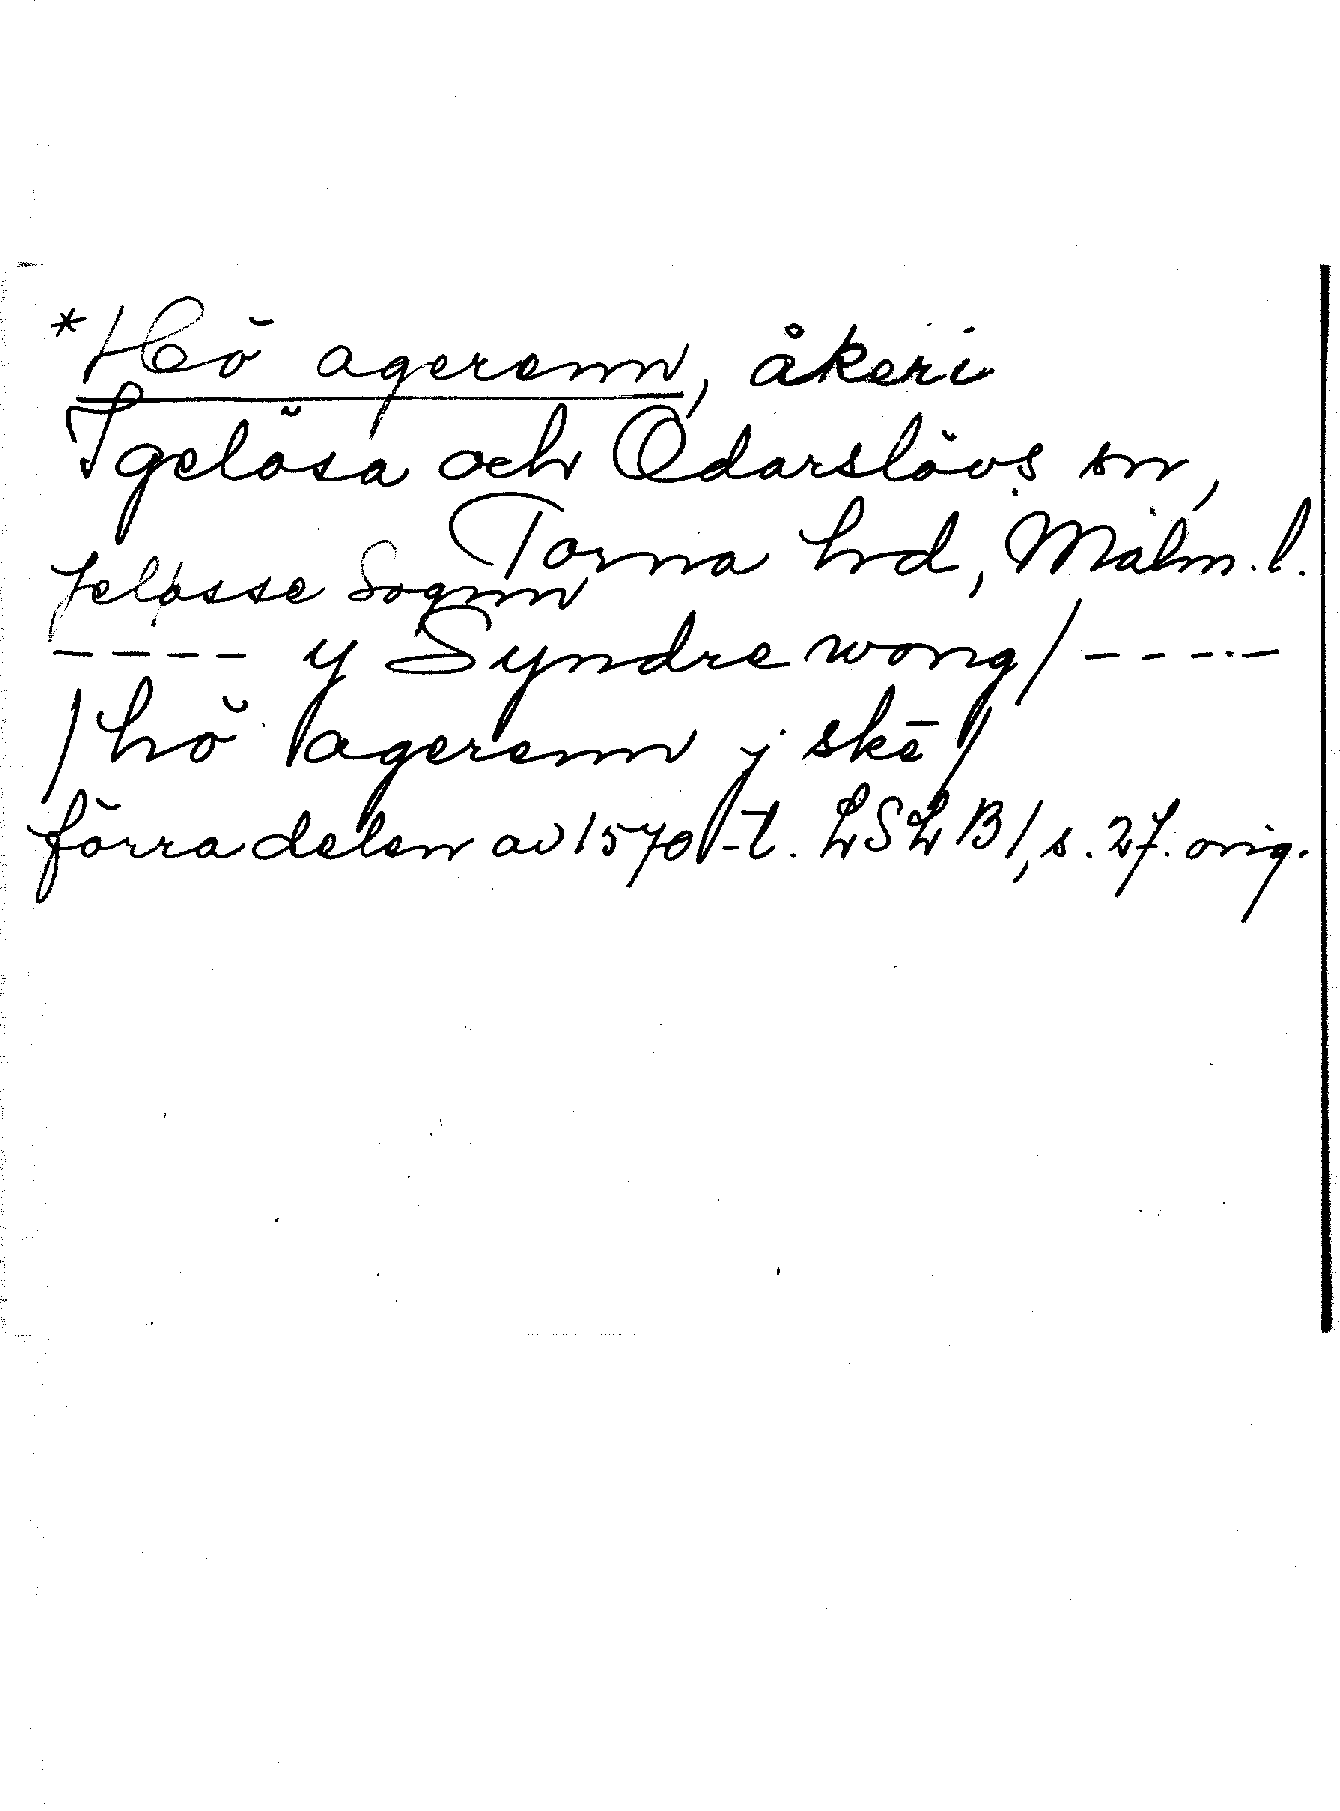 *Hö agerenn, åkeri
Igelösa och Odarslövs sn,
Torna hd, Malm. l.
Jeløsse Sognn
---- y Syndre wong/-----
/hö agerenn j skē/
förra delen av 1570-t. LSLB1, s. 27. orig.